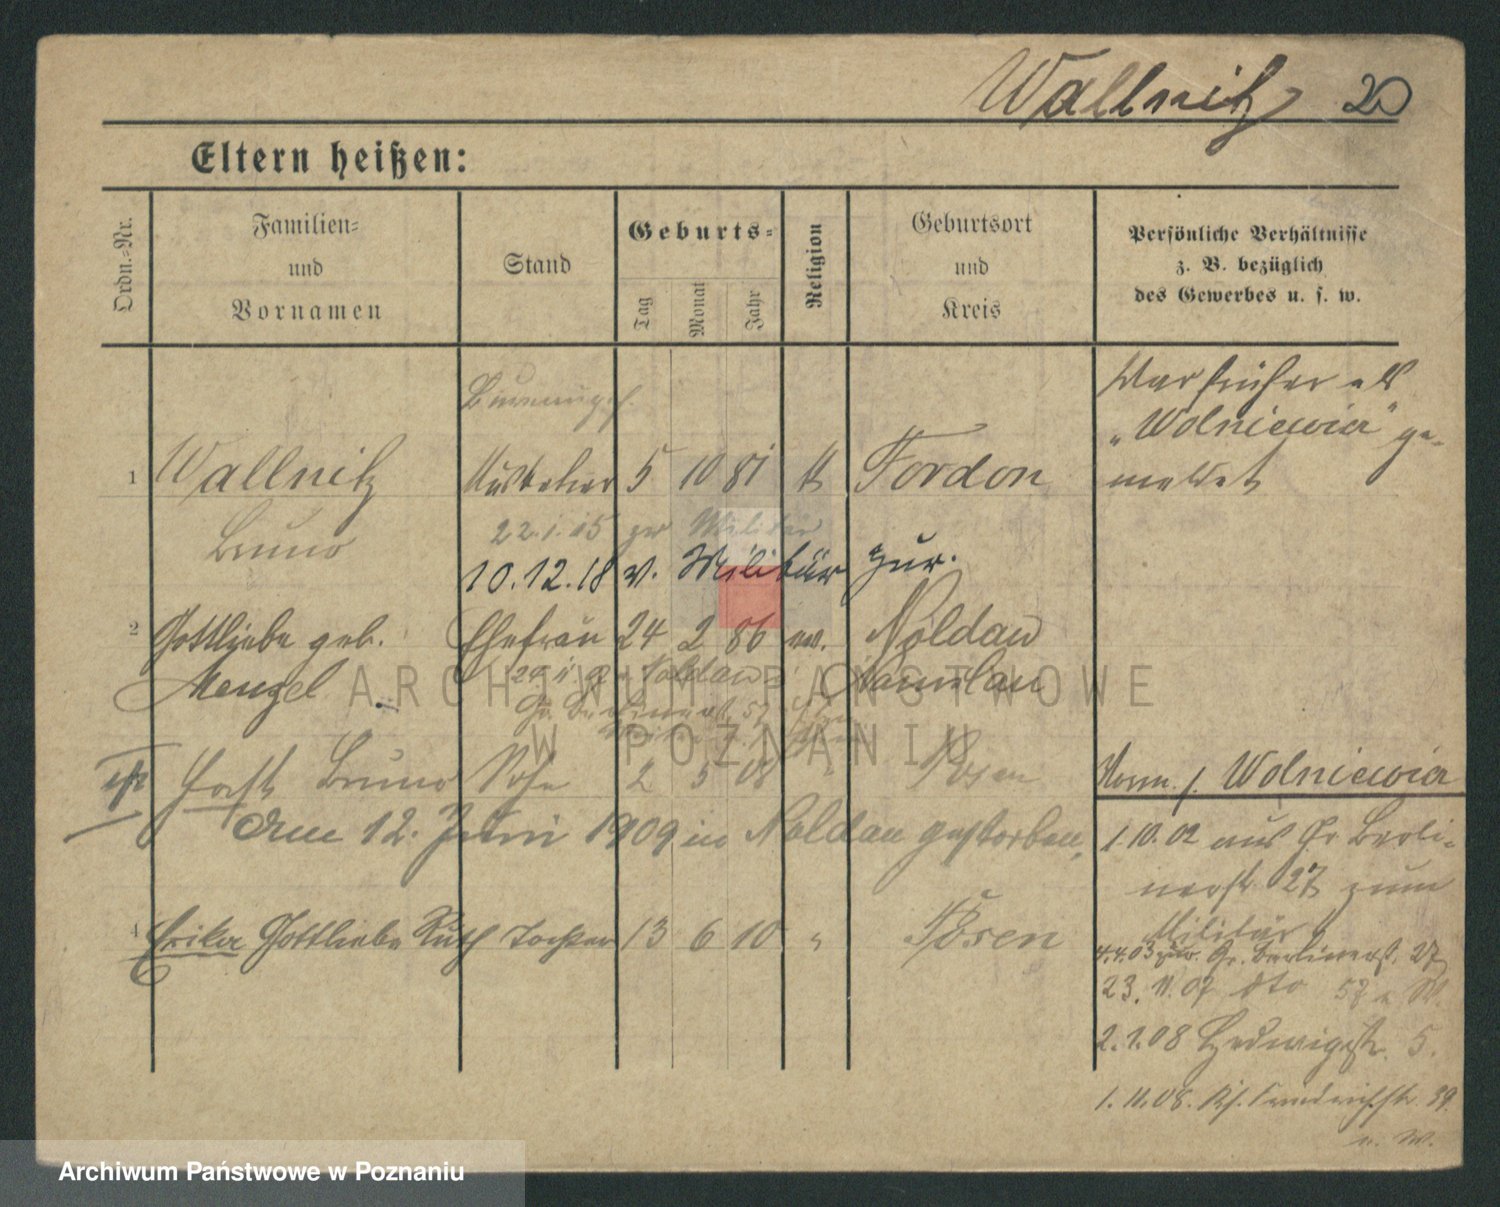 Wallnitz 20
Eltern heißen:
Ordn.-Nr.
Familien- und Vornamen
Stand
Geburts-
Tag
Monat
Jahr
Religion
Geburtsort und Kreis
Persönliche Verhältnisse
z. B. bezüglich
des Gewerbes u. s. w.
War früher als
„Wolniewicz" ge-
meldet
1 Wallnitz 5 10 81 k Fordon
Bruno 22.1.15 zur Militär
10.12.18 v. Militär zur.
2 Gottliebe geb. Ehefrau 24 2 86 ev. Noldau
Menzel Noldau Namslau
Horst Bruno Sohn 2 5 08 " Posen
Am 12. Juni 1909 in Noldau gestorben.
4 Erika Gottliebe Ruth Tochter 13 6 10 " Posen
Norm. f. Wolniewicz
1.10.02 aus Gr Berli-
nerstr 27 zum
Militär
4.4.03 zur. Gr. Berlinerst. 27
23.11.07 dto 57
2.1.08 Hedwigstr. 5.
1.11.08. Friedrichstr. 39
u. W.
ARCHIWUM PAŃSTWOWE
W POZNANIU
Archiwum Państwowe w Poznaniu